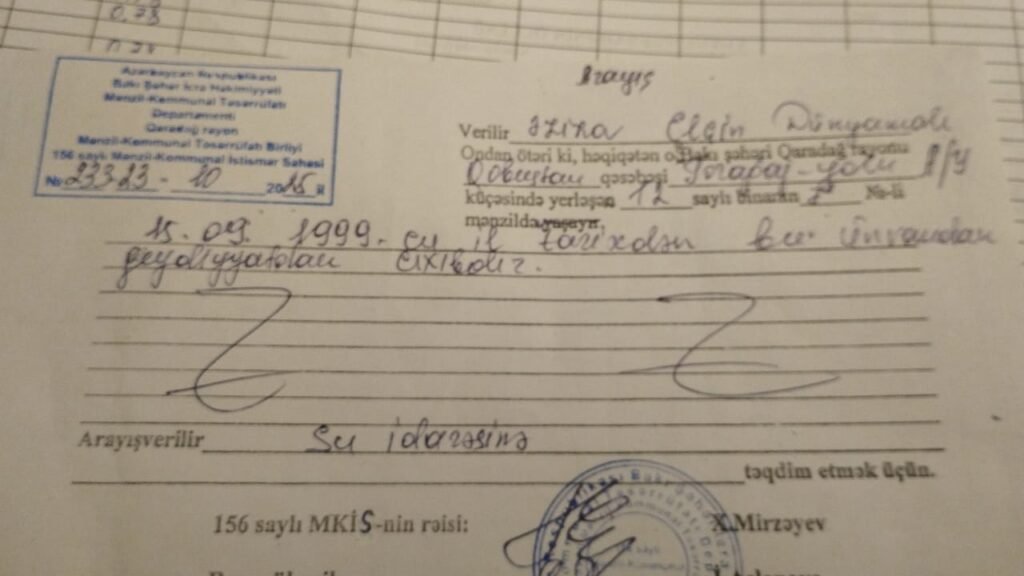 0.73
Arayış
Azərbaycan Respublikası
Bakı Şəhər İcra Hakimiyyəti
Mənzil-Kommunal Təsərrüfatı
Departamenti
Qaradağ rayon
Mənzil-Kommunal Təsərrüfatı Birliyi
156 saylı Mənzil-Kommunal İstismar Sahəsi
№ 23323 - 10 2015 il
Verilir Elçin
Ondan ötəri ki, həqiqətən o Bakı şəhəri Qaradağ rayonu
Qobustan qəsəbəsi
küçəsində yerləşən 12 saylı binanın №-li
mənzildə yaşayır.
15.09.1999-cu il tarixdən bu ünvandan
qeydiyyatdan çıxıbdır.
Arayışverilir Su idarəsinə
təqdim etmək üçün.
156 saylı MKİS-nin rəisi: X.Mirzəyev